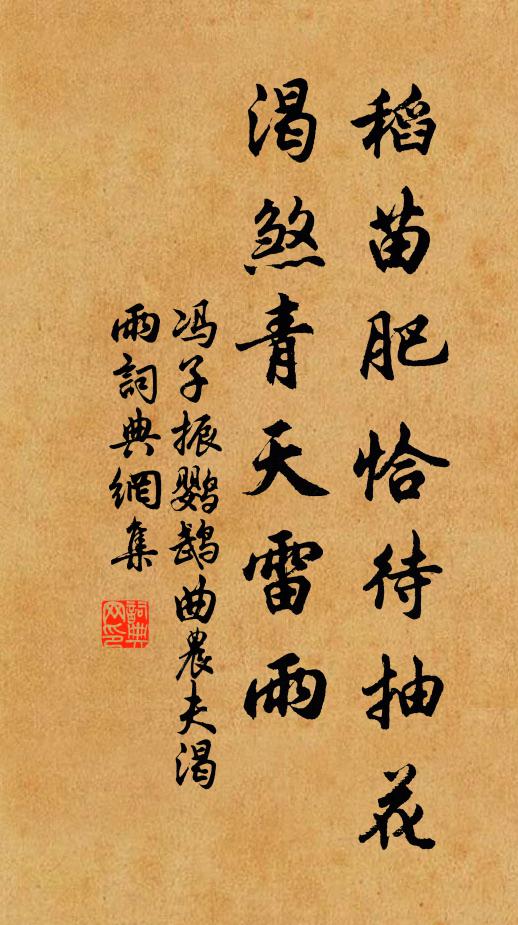 稻苗肥恰待抽花
渴煞青天雷雨
冯子振鹦鹉曲農夫渴
雨詞典網集
詞典
网印